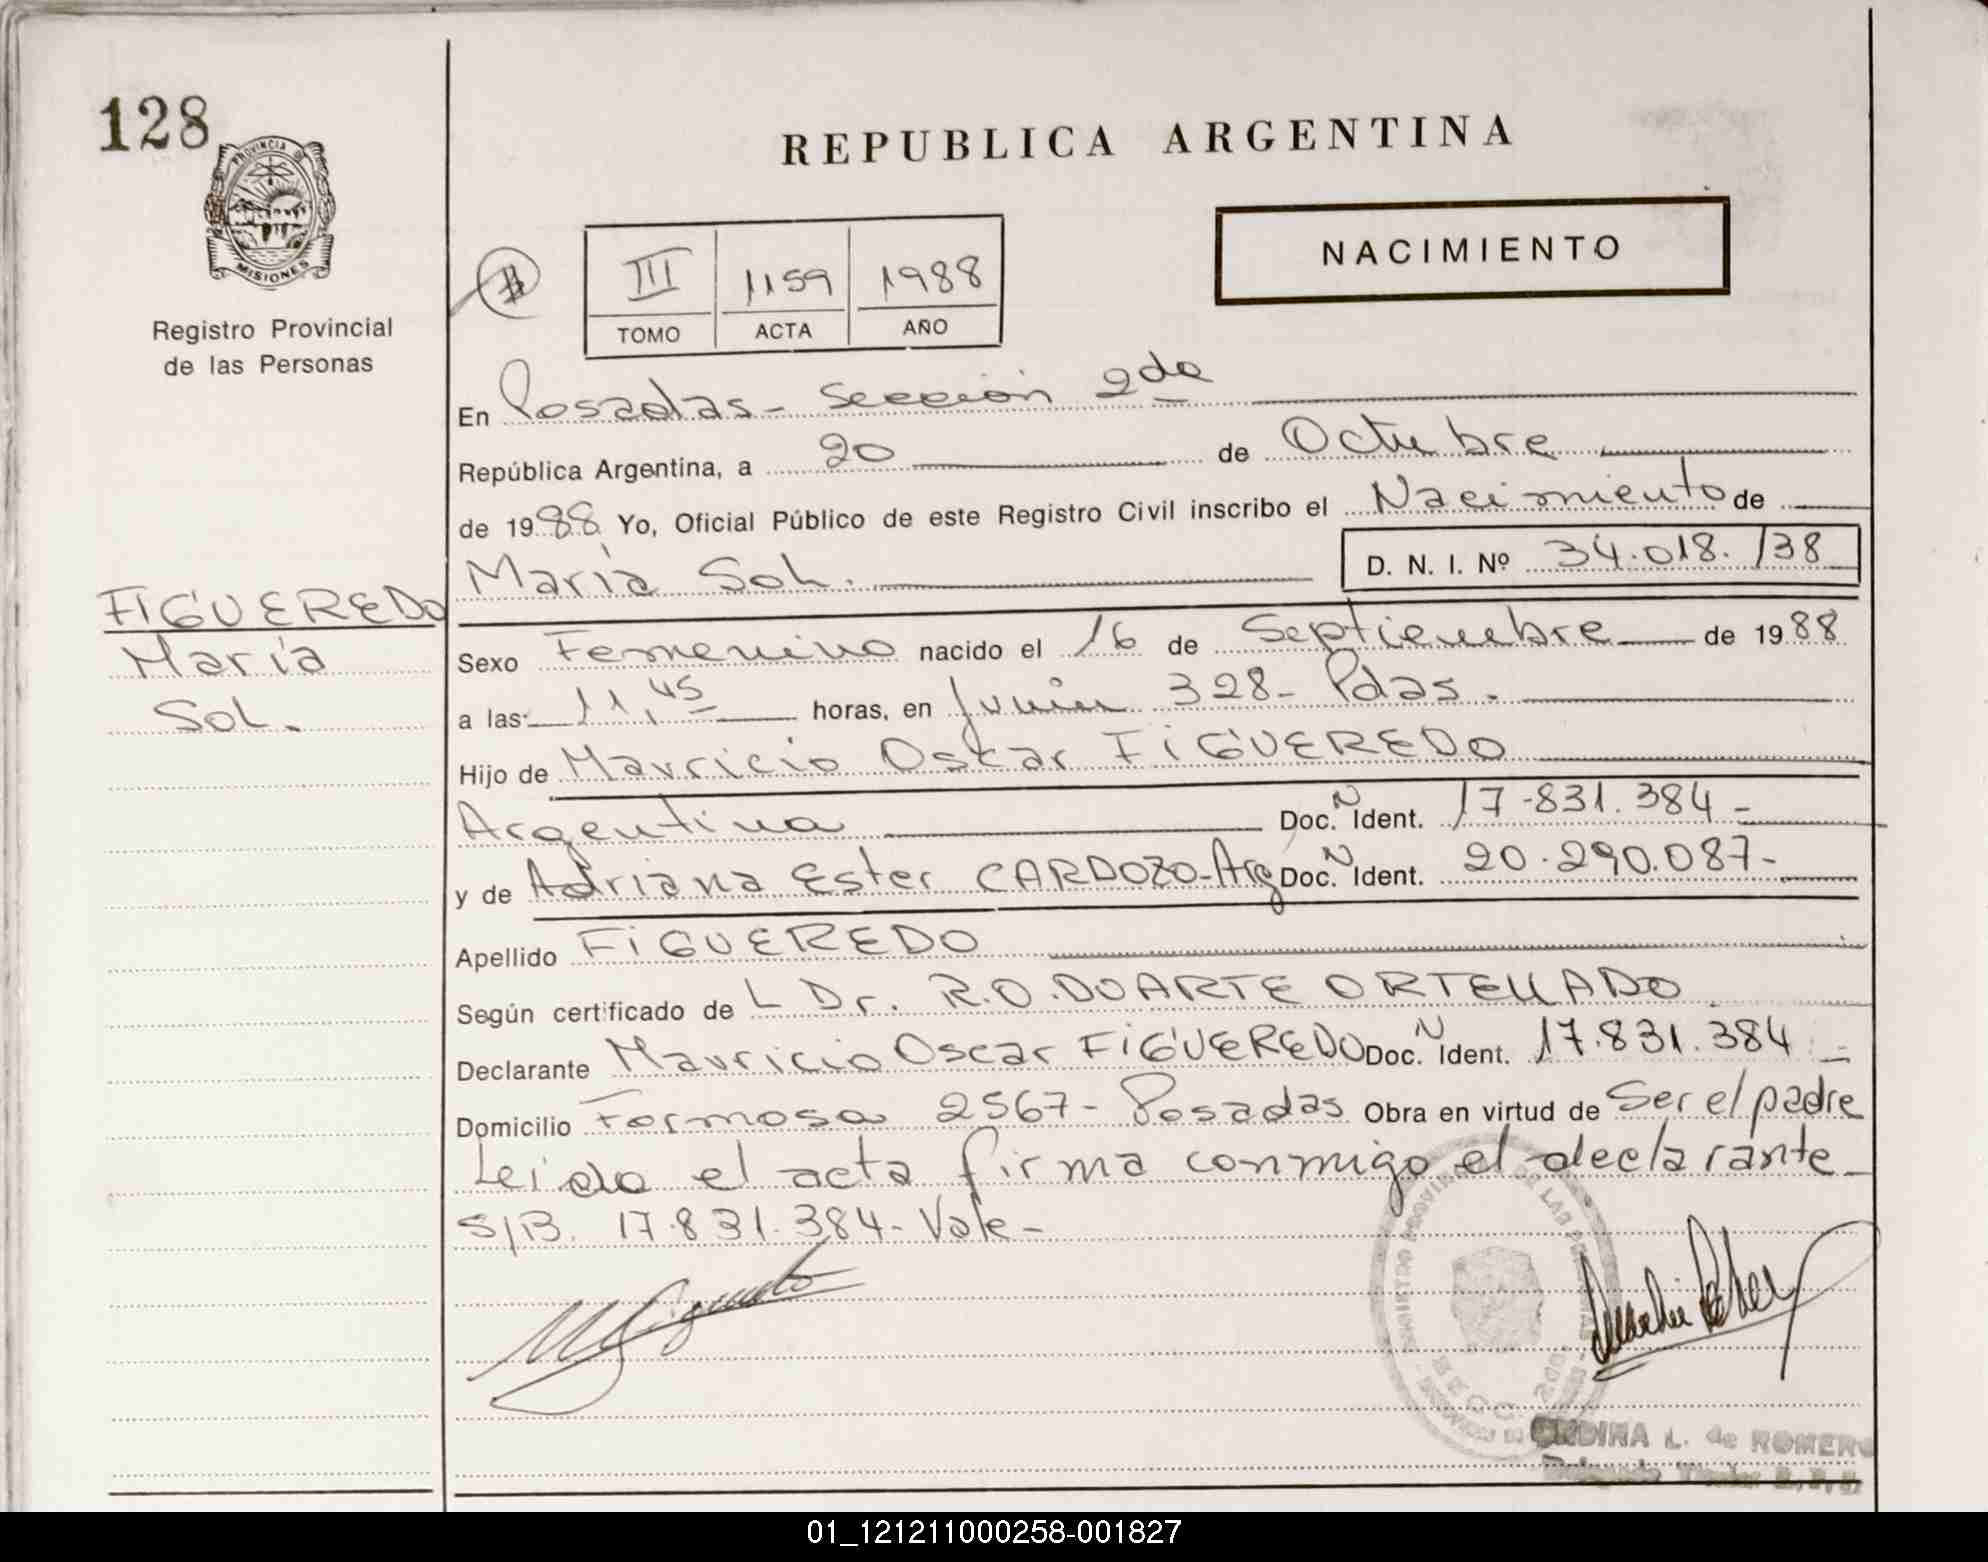 128
PROVINCIA DE
MISIONES
Registro Provincial
de las Personas
REPUBLICA ARGENTINA
NACIMIENTO
III 1159 1988
TOMO ACTA AÑO
En Posadas - Sección 2da
República Argentina, a 20 de Octubre
de 1988 Yo, Oficial Público de este Registro Civil inscribo el Nacimiento de
María Sol. D. N. I. Nº 34.018.138
FIGUEREDO
María
Sol.
Sexo Femenino nacido el 16 de Septiembre de 1988
a las 11,45 horas, en Junin 328 - Pdas.
Hijo de Mauricio Oscar FIGUEREDO
Argentina Doc. N Ident. 17.831.384 -
y de Adriana Ester CARDOZO - Arg Doc. N Ident. 20.290.087 -
Apellido FIGUEREDO
Según certificado de L Dr. R.O. DUARTE ORTELLADO
Declarante Mauricio Oscar FIGUEREDO Doc. N Ident. 17.831.384 -
Domicilio Formosa 2567 - Posadas Obra en virtud de Ser el padre
Leida el acta firma conmigo el declarante -
S/B. 17.831.384 - Vale -
ONDINA L. de ROMERO
01_121211000258-001827